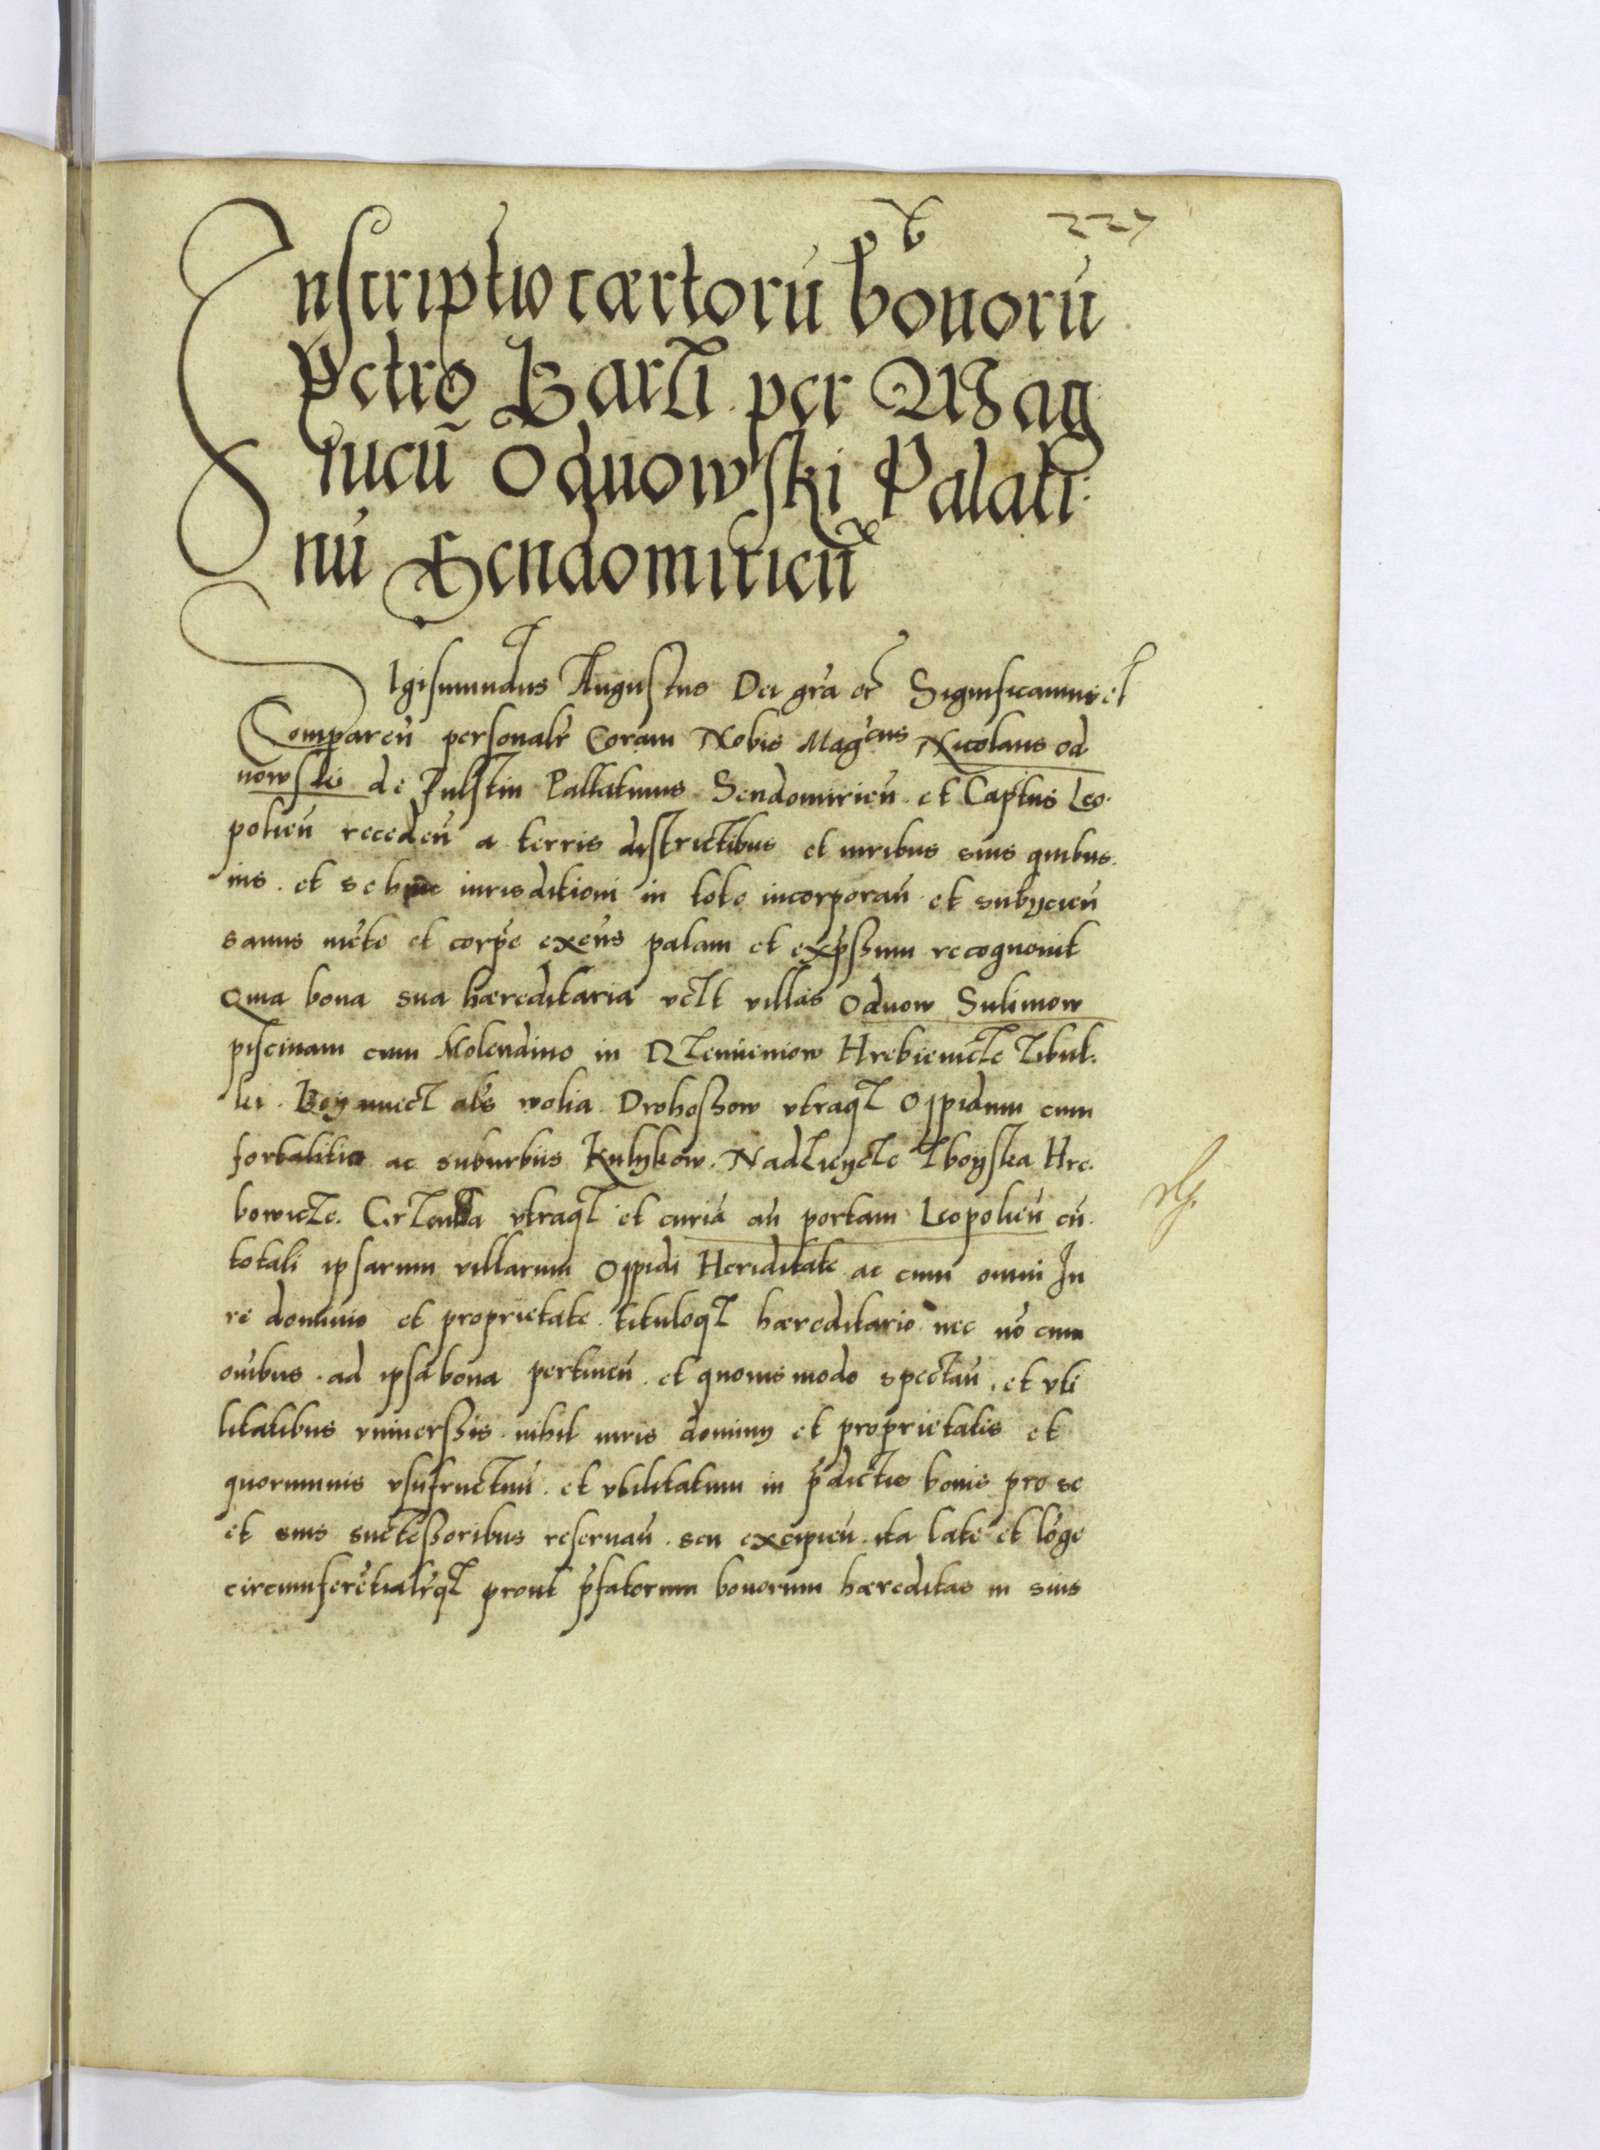 227
Inscriptio cærtorū bonorū
Petro Barzi per Mag
nicū Odnowski Palati:
nū Sendomirień
Sigismundus Augustus Dei gr̃a etc̃ Significamus et
Compareñ personalr̃ Coram Nobis Mag̃cus Nicolaus Od
nowski de Fulstin Pallatinus Sendomirień et Captus Leo.
polień recedeń a terris districtibus et iuribus suis quibus.
uis. et se huic iurisditioni in toto incorporań et subÿcień
sanus mẽte et corpẽ exẽns palam et exp̃ssum recognovit
Quia bona sua hæreditaria vcꝫt villas Odnow Sulimow
piscinam cum Molendino in Hrebienicze Zibul:
ki. Boyanicz als wolia Drohossow vtraqꝫ Oppidum cum
fortalitio ac suburbiis Kulykow. Nadziycze Zboyska Hre.
bowicze. vtraqꝫ et curiā añ portam Leopolień cū.
totali ipsarum villarum Oppidi Heriditate ac cum omni Iu
re dominio et proprietate tituloqꝫ hæreditario nec nõ cum
om̃ibus. ad ipsa bona pertineń. et quouismodo spectań. et vti
litatibus vniuerssis nihil iuris dominÿ et proprietatis et
quorumuis vsufructuū. et vtilitatum in p̃dictis bonis pro se
et suis suctessoribus reseruań. seu excipień. ita late et lõge
circumferẽtialr̃qꝫ prout p̃fatorum bonorum hæreditas in suis